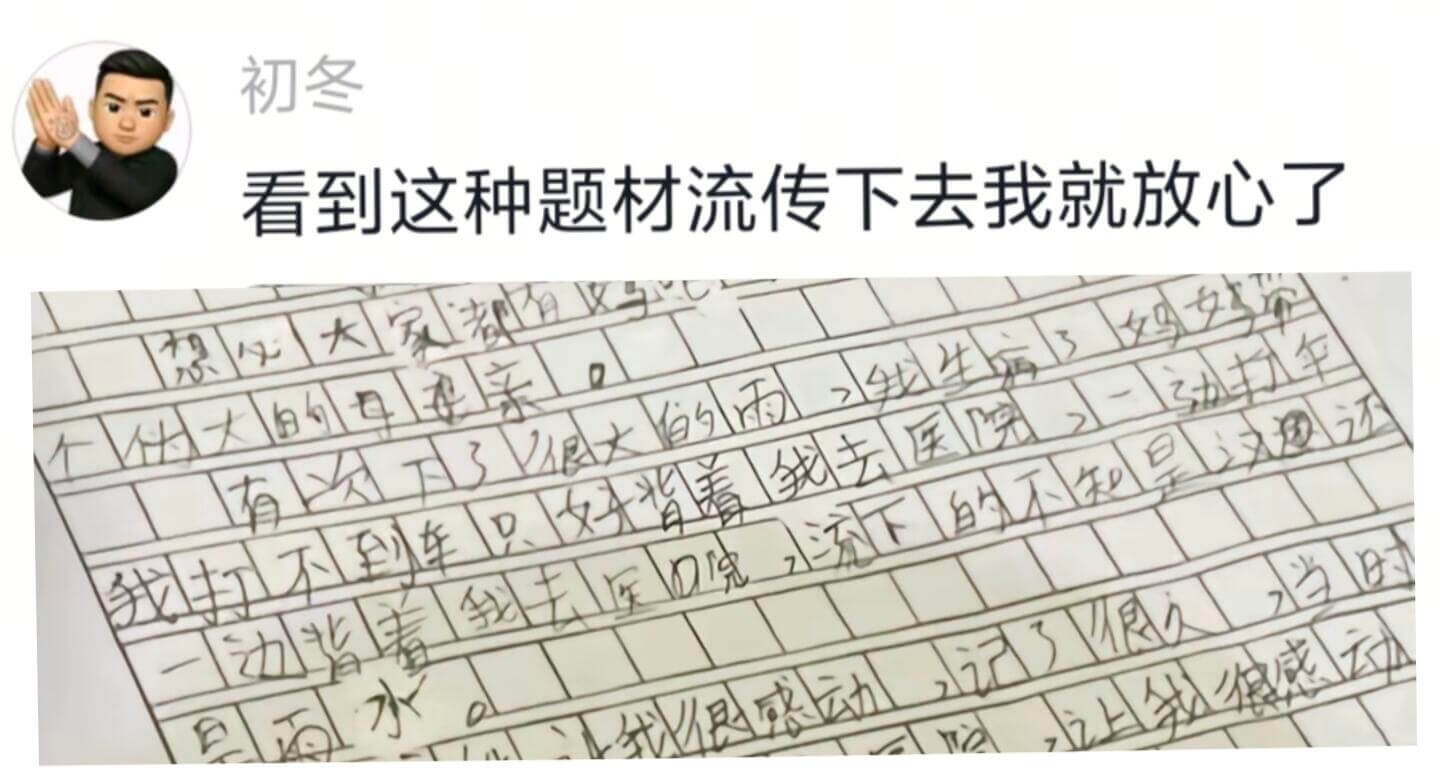 初冬
看到这种题材流传下去我就放心了
想必大家都有妈
个伟大的母亲。
有次下了很大的雨,我生病了妈妈带
我打不到车只好背着我去医院,一边打伞
一边背着我去医院,流下的不知是汉还
是雨水。
让我很感动,记了很久,当时
医院,让我很感动